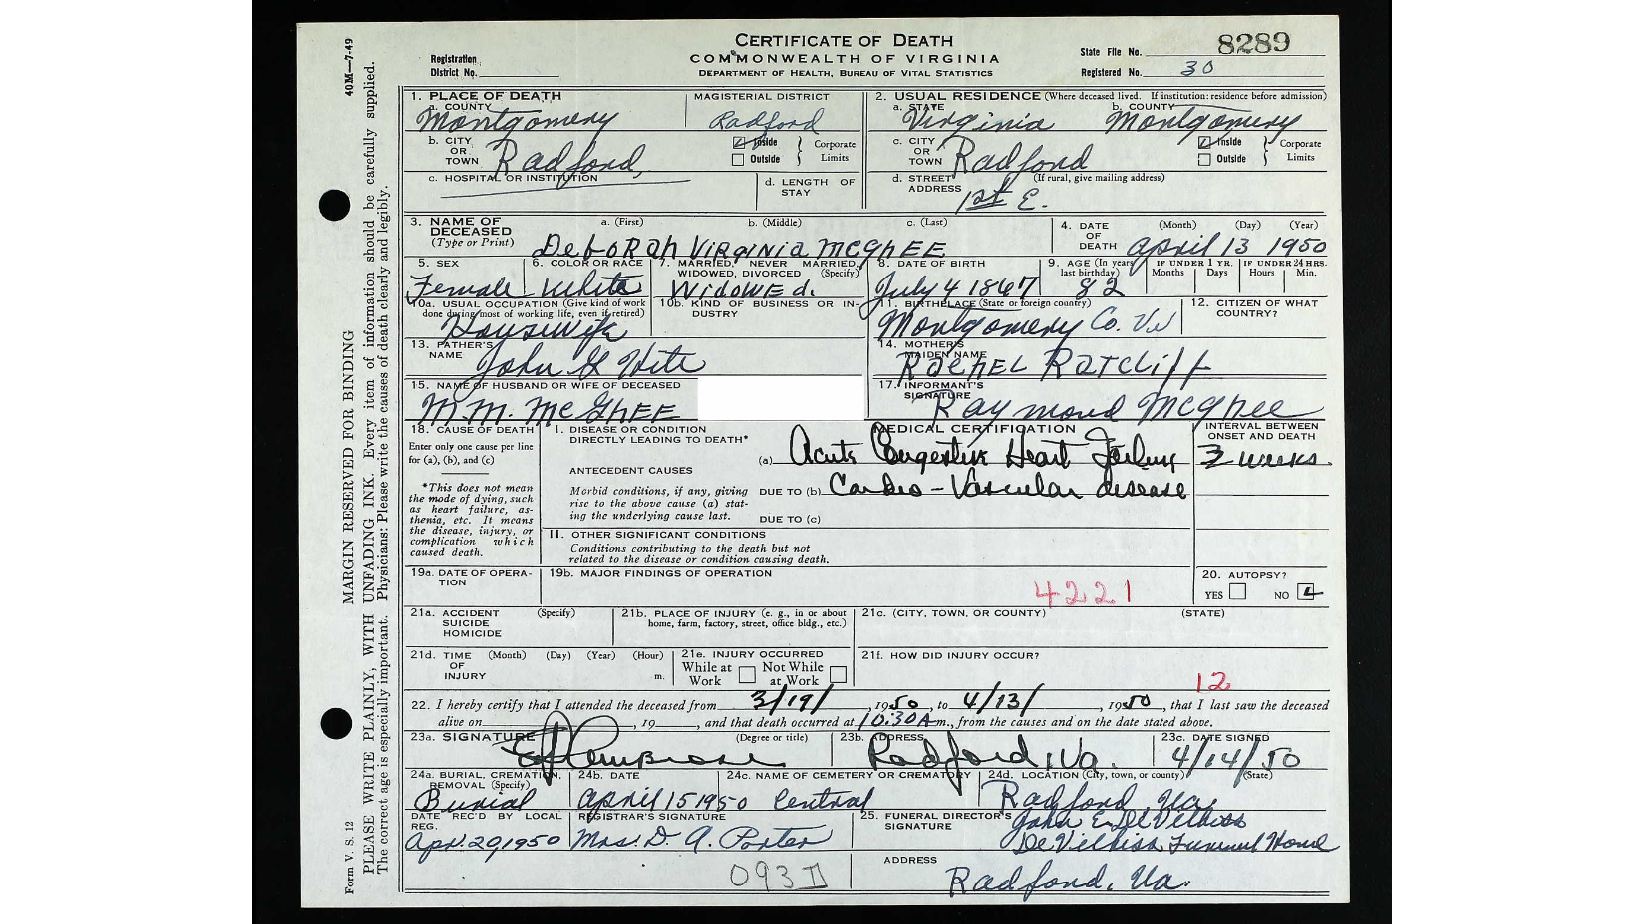 40M—7-49
MARGIN RESERVED FOR BINDING
PLEASE WRITE PLAINLY, WITH UNFADING INK. Every item of information should be carefully supplied.
The correct age is especially important. Physicians: Please write the causes of death clearly and legibly.
Form V. S. 12
CERTIFICATE OF DEATH
COMMONWEALTH OF VIRGINIA
DEPARTMENT OF HEALTH, BUREAU OF VITAL STATISTICS
Registration District No.
State File No. 8289
Registered No. 30
1. PLACE OF DEATH
a. COUNTY Montgomery
MAGISTERIAL DISTRICT Radford
b. CITY OR TOWN Radford,
Inside Outside } Corporate Limits
c. HOSPITAL OR INSTITUTION
d. LENGTH OF STAY
2. USUAL RESIDENCE (Where deceased lived. If institution: residence before admission)
a. STATE Virginia
b. COUNTY Montgomery
c. CITY OR TOWN Radford
Inside Outside } Corporate Limits
d. STREET ADDRESS (If rural, give mailing address) 1st E.
3. NAME OF DECEASED (Type or Print)
a. (First) b. (Middle) c. (Last)
DeboRah VIRginia McGhEE
4. DATE OF DEATH (Month) (Day) (Year) April 13 1950
5. SEX Female
6. COLOR OR RACE White
7. MARRIED, NEVER MARRIED, WIDOWED, DIVORCED (Specify) WidowEd.
8. DATE OF BIRTH July 4 1867
9. AGE (In years last birthday) 82
IF UNDER 1 YR. Months Days
IF UNDER 24 HRS. Hours Min.
10a. USUAL OCCUPATION (Give kind of work done during most of working life, even if retired) Housewife
10b. KIND OF BUSINESS OR INDUSTRY
11. BIRTHPLACE (State or foreign country) Montgomery Co. Va
12. CITIZEN OF WHAT COUNTRY?
13. FATHER'S NAME John G Hite
14. MOTHER'S MAIDEN NAME RachEL Ratcliff
15. NAME OF HUSBAND OR WIFE OF DECEASED M.M. McGhEE
17. INFORMANT'S SIGNATURE Raymond McGhee
18. CAUSE OF DEATH
Enter only one cause per line for (a), (b), and (c)
*This does not mean the mode of dying, such as heart failure, asthenia, etc. It means the disease, injury, or complication which caused death.
MEDICAL CERTIFICATION
I. DISEASE OR CONDITION DIRECTLY LEADING TO DEATH*
(a) Acute Congestive Heart Failure
INTERVAL BETWEEN ONSET AND DEATH
3 weeks.
ANTECEDENT CAUSES
Morbid conditions, if any, giving rise to the above cause (a) stating the underlying cause last.
DUE TO (b) Cardio-Vascular disease
DUE TO (c)
II. OTHER SIGNIFICANT CONDITIONS
Conditions contributing to the death but not related to the disease or condition causing death.
19a. DATE OF OPERATION
19b. MAJOR FINDINGS OF OPERATION
4221
20. AUTOPSY?
YES NO
21a. ACCIDENT SUICIDE HOMICIDE (Specify)
21b. PLACE OF INJURY (e. g., in or about home, farm, factory, street, office bldg., etc.)
21c. (CITY, TOWN, OR COUNTY) (STATE)
21d. TIME OF INJURY (Month) (Day) (Year) (Hour) m.
21e. INJURY OCCURRED While at Work Not While at Work
21f. HOW DID INJURY OCCUR?
12
22. I hereby certify that I attended the deceased from 3/19/, 1950, to 4/13/, 1950, that I last saw the deceased
alive on , 19 , and that death occurred at 10:30 A m., from the causes and on the date stated above.
23a. SIGNATURE (Degree or title)
23b. ADDRESS Radford, Va.
23c. DATE SIGNED 4/14/50
24a. BURIAL, CREMATION, REMOVAL (Specify) Burial
24b. DATE April 15 1950
24c. NAME OF CEMETERY OR CREMATORY Central
24d. LOCATION (City, town, or county) (State) Radford, Va,
DATE REC'D BY LOCAL REG. Apr. 20, 1950
REGISTRAR'S SIGNATURE Mrs. D. A. Porter
25. FUNERAL DIRECTOR'S SIGNATURE John E. DeVilbiss
DeVilbiss Funeral Home
ADDRESS Radford, Va.
093